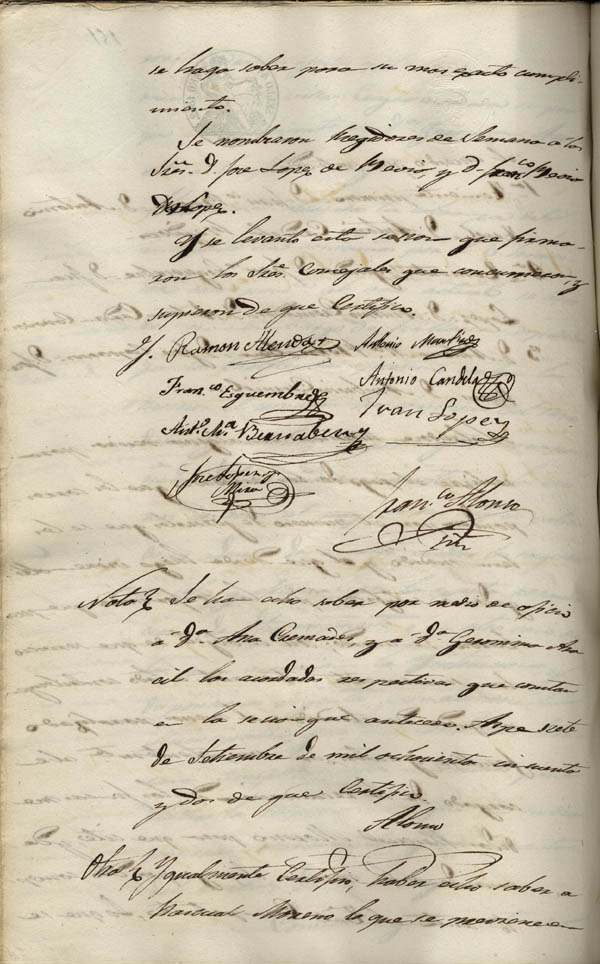 se haga saber para su mas exacto cumpli-
miento.
Se nombraron Regidores de Semana á los
Sres. D. Jose Lopez de y D. Franco
de Lopez.
Y se levantó esta sesion que firma-
ron los Sres. Concejales que concurrieron y
supieron de que Certifico.
Ramon Antonio Martinez
Franco Esquembre Antonio Candela
Anto. Ma. Bernabeu Juan Lopez
Jose Lopez y
Mira
Franco Alonso
Srio
Nota Se ha echo saber por medio de oficio
á Da. Ana Cremades, y á Da. Geronima
los acordados respectivos que constan
en la secion que antecede. Aspe siete
de Setiembre de mil ochocientos cincuenta
y dos de que Certifico.
Alonso
Otra Ygualmente Certifico, haber echo saber a
Pascual Moreno lo que se previene en